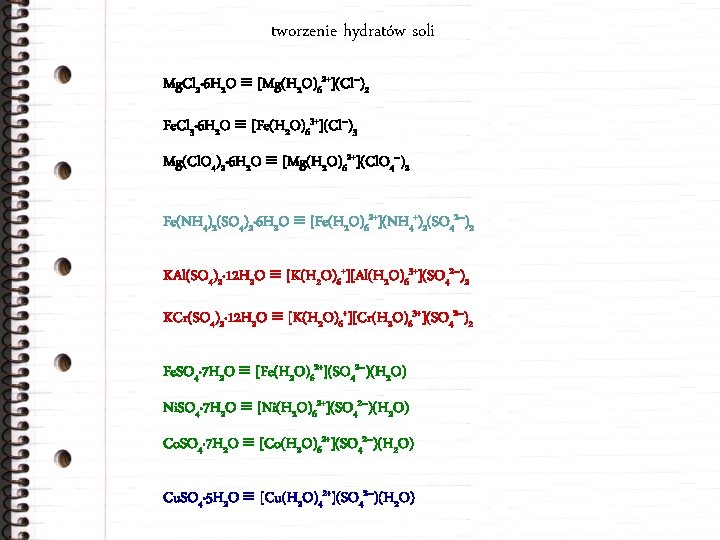 tworzenie hydratów soli
MgCl₂·6H₂O ≡ [Mg(H₂O)₆²⁺](Cl⁻)₂
FeCl₃·6H₂O ≡ [Fe(H₂O)₆³⁺](Cl⁻)₃
Mg(ClO₄)₂·6H₂O ≡ [Mg(H₂O)₆²⁺](ClO₄⁻)₂
Fe(NH₄)₂(SO₄)₂·6H₂O ≡ [Fe(H₂O)₆²⁺](NH₄⁺)₂(SO₄²⁻)₂
KAl(SO₄)₂·12H₂O ≡ [K(H₂O)₆⁺][Al(H₂O)₆³⁺](SO₄²⁻)₂
KCr(SO₄)₂·12H₂O ≡ [K(H₂O)₆⁺][Cr(H₂O)₆³⁺](SO₄²⁻)₂
FeSO₄·7H₂O ≡ [Fe(H₂O)₆²⁺](SO₄²⁻)(H₂O)
NiSO₄·7H₂O ≡ [Ni(H₂O)₆²⁺](SO₄²⁻)(H₂O)
CoSO₄·7H₂O ≡ [Co(H₂O)₆²⁺](SO₄²⁻)(H₂O)
CuSO₄·5H₂O ≡ [Cu(H₂O)₄²⁺](SO₄²⁻)(H₂O)